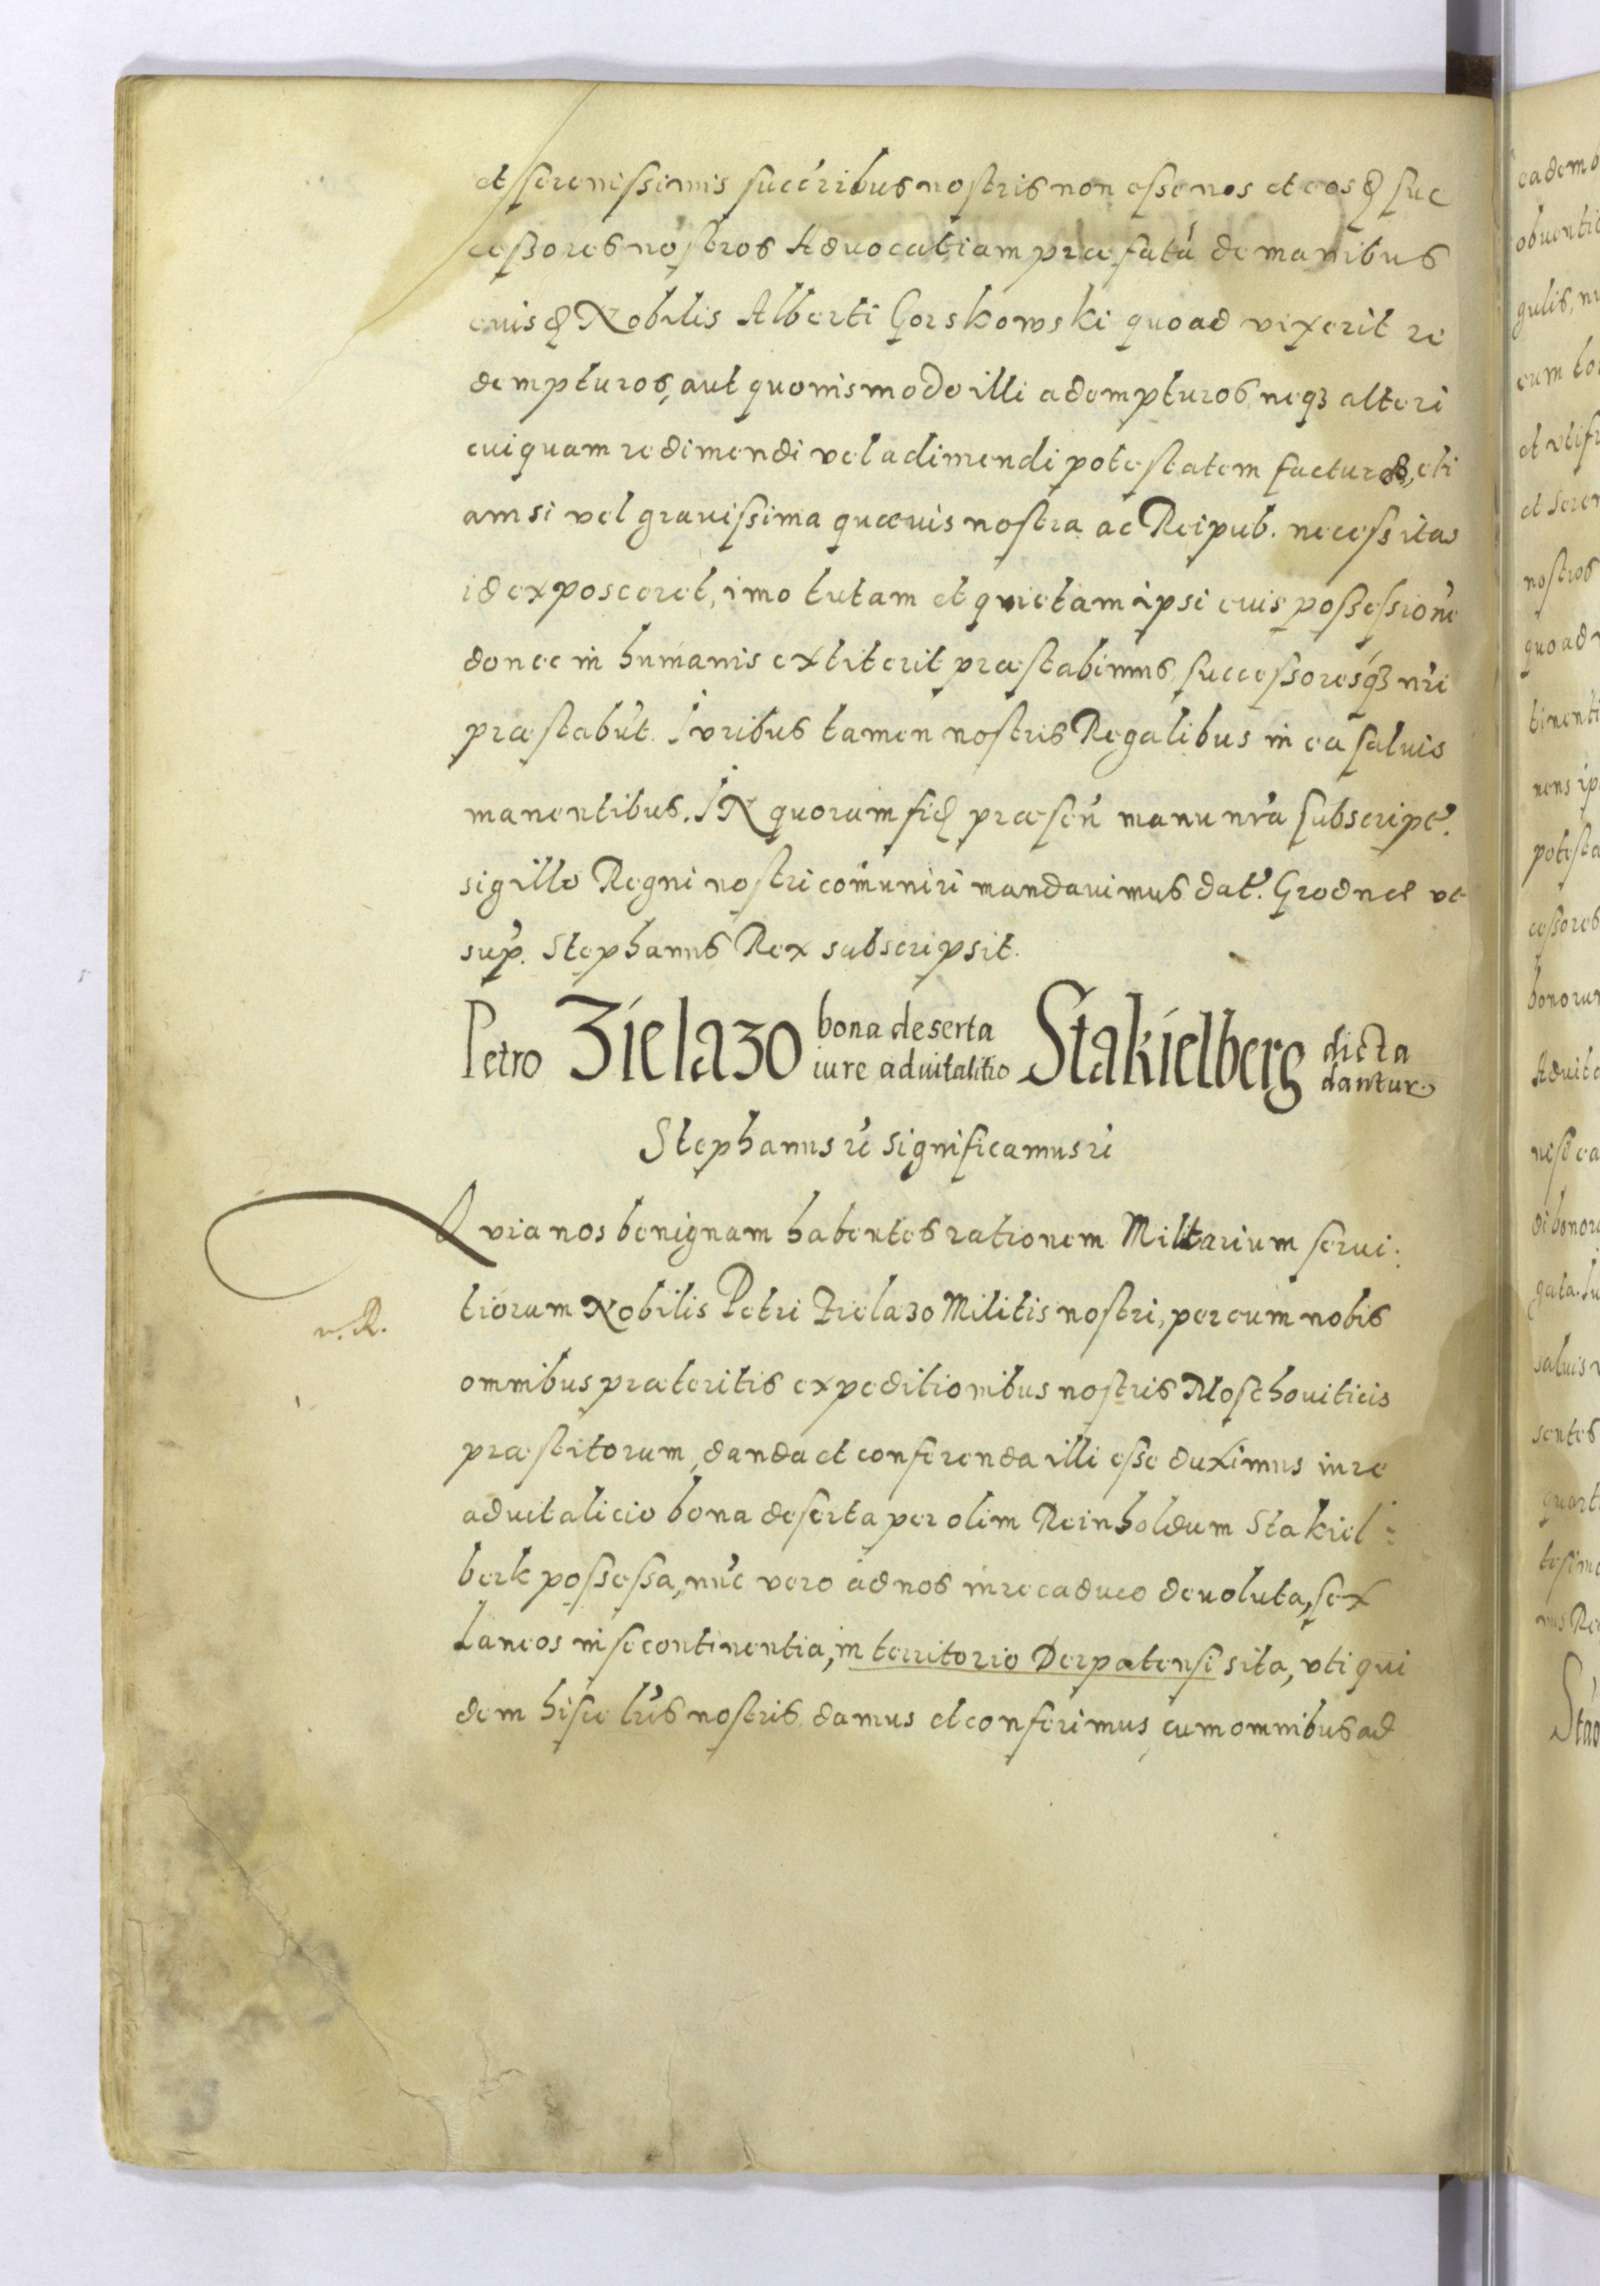 et serenissimis succ'ribus nostris non esse nos et eosd suc
cessores nostros Aduocatiam praefatá de manibus
euisd Nobilis Alberti Gorskowski quoad vixerit re
dempturos, aut quouismodo illi adempturos, neq3 alteri
cuiquam redimendi vel adimendi potestatem facturos, eti
amsi vel grauissima quaeuis nostra ac Reipub. necessitas
id exposceret, imo tutam et quietam ipsi euis possessio'ne
donec in humanis extiterit praestabimus, successoresq3 n'ri
praestabu't. Iuribus tamen nostris Regalibus in ea saluis
manentibus. IN quorum fid praesen' manu n'ra subscript'.
sigillo Regni nostri com̃uniri mandauimus dat'. Grodnae vt
sup'. Stephanus Rex subscripsit.
Petro Zielazo bona deserta iure aduitalitio Stakielberg dicta dantur
Stephanus rc' significamus rc'
Qvia nos benignam habentes rationem Militarium serui:
tiorum Nobilis Petri Zielazo Militis nostri, per eum nobis
omnibus praeteritis expeditionibus nostris Moschouiticis
praestitorum, danda et conferenda illi esse duximus iure
aduitalicio bona deserta per olim Reinholdum Stakiel:
berk possessa, nu'c vero ad nos iure caduco deuoluta, sex
Laneos in se continentia, in territorio Derpatensi sita, vti qui
v. R.
dem hisce l'ris nostris damus et conferimus, cum omnibus ad
eadem o
obuentio
gulis, nu
eum to
et vtifr
et seren
nostros
quoad v
tinenti
nens ip
potesta
cessores
honorum
Aduita
nisi ea
di honor
gata. Iu
saluis
sentes
quart
tesimo
nus Re
Sta